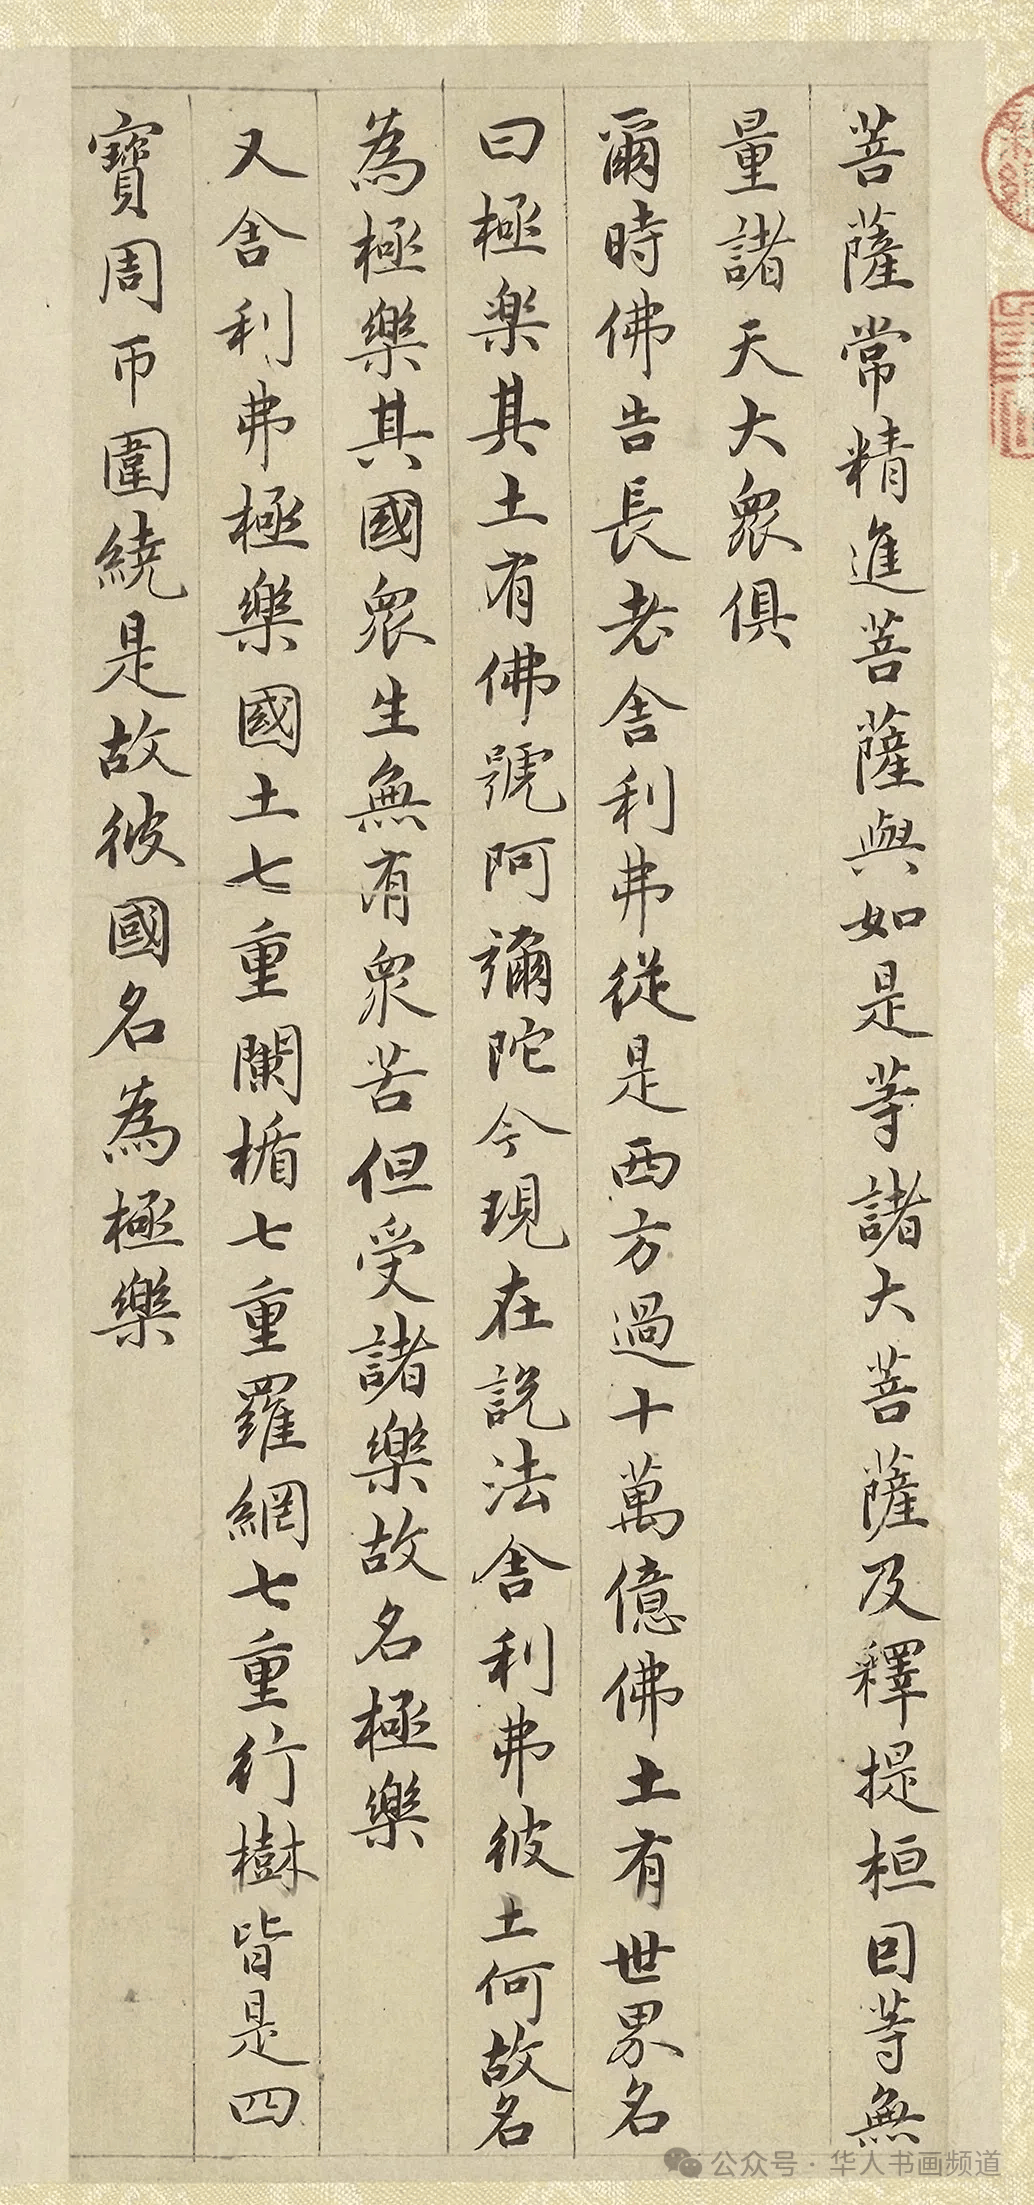 菩薩常精進菩薩與如是等諸大菩薩及釋提桓因等無
量諸天大衆俱
爾時佛告長老舍利弗從是西方過十萬億佛土有世界名
曰極樂其土有佛號阿彌陀今現在説法舍利弗彼土何故名
為極樂其國衆生無有衆苦但受諸樂故名極樂
又舍利弗極樂國土七重闌楯七重羅網七重行樹皆是四
寶周帀圍繞是故彼國名為極樂
公众号·华人书画频道